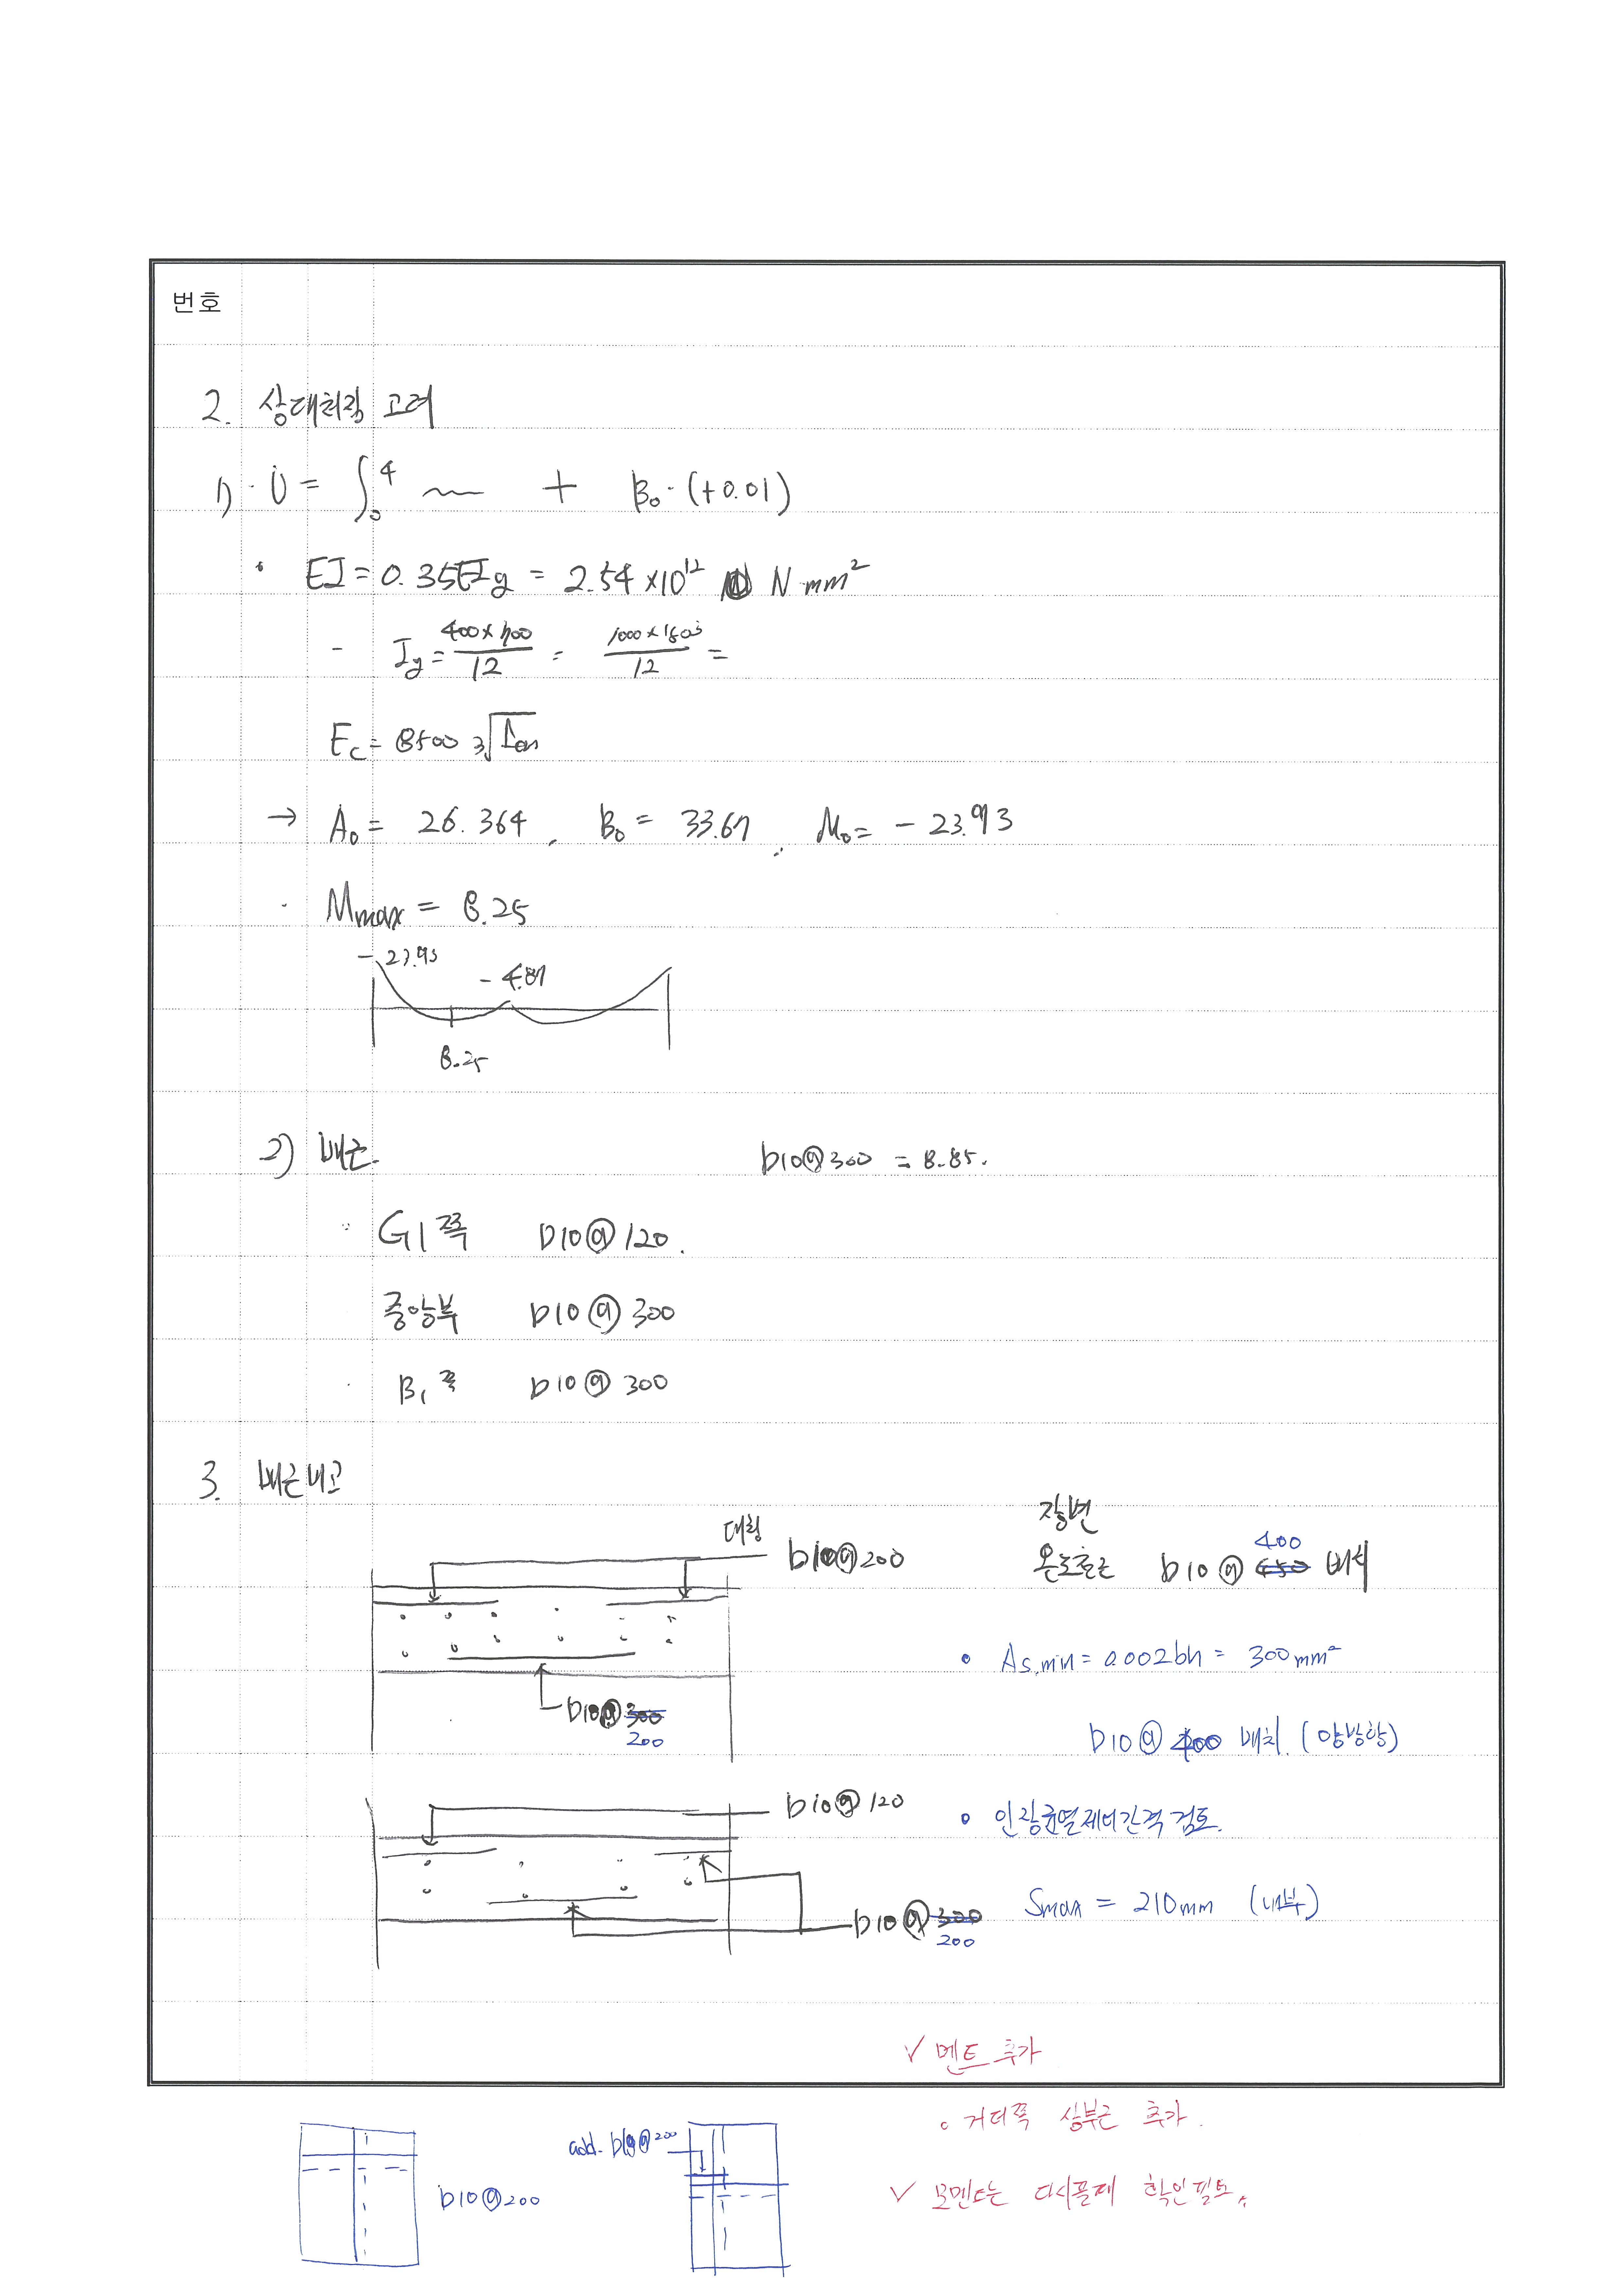 번호
2. 상대처짐 고려
1) · U = ∫₀⁴ ~ + B₀·(+0.01)
· EI = 0.35EIg = 2.54×10¹² N·mm²
- Ig = 400×700/12 = 1000×150³/12 =
Ec = 8500 ³√fcm
→ A₀ = 26.364, B₀ = 33.67, M₀ = -23.93
· Mmax = 8.25
-23.93
-4.87
8.25
2) 배근 D10@300 = 8.85.
· G1쪽 D10@120.
중앙부 D10@300
· B1쪽 D10@300
3. 배근비교
대칭 D10@200
장변
온도철근 D10@ 450 400 배치
D10@ 300 200
· As,min = 0.002bh = 300mm²
D10@400 배치 (양방향)
D10@120
· 인장균열제어간격 검토.
D10@ 300 200
Smax = 210mm (내부)
✓ 멘트 추가
· 거더쪽 상부근 추가.
add. D10@200
D10@200
✓ 모멘트는 다시풀제 확인필요.